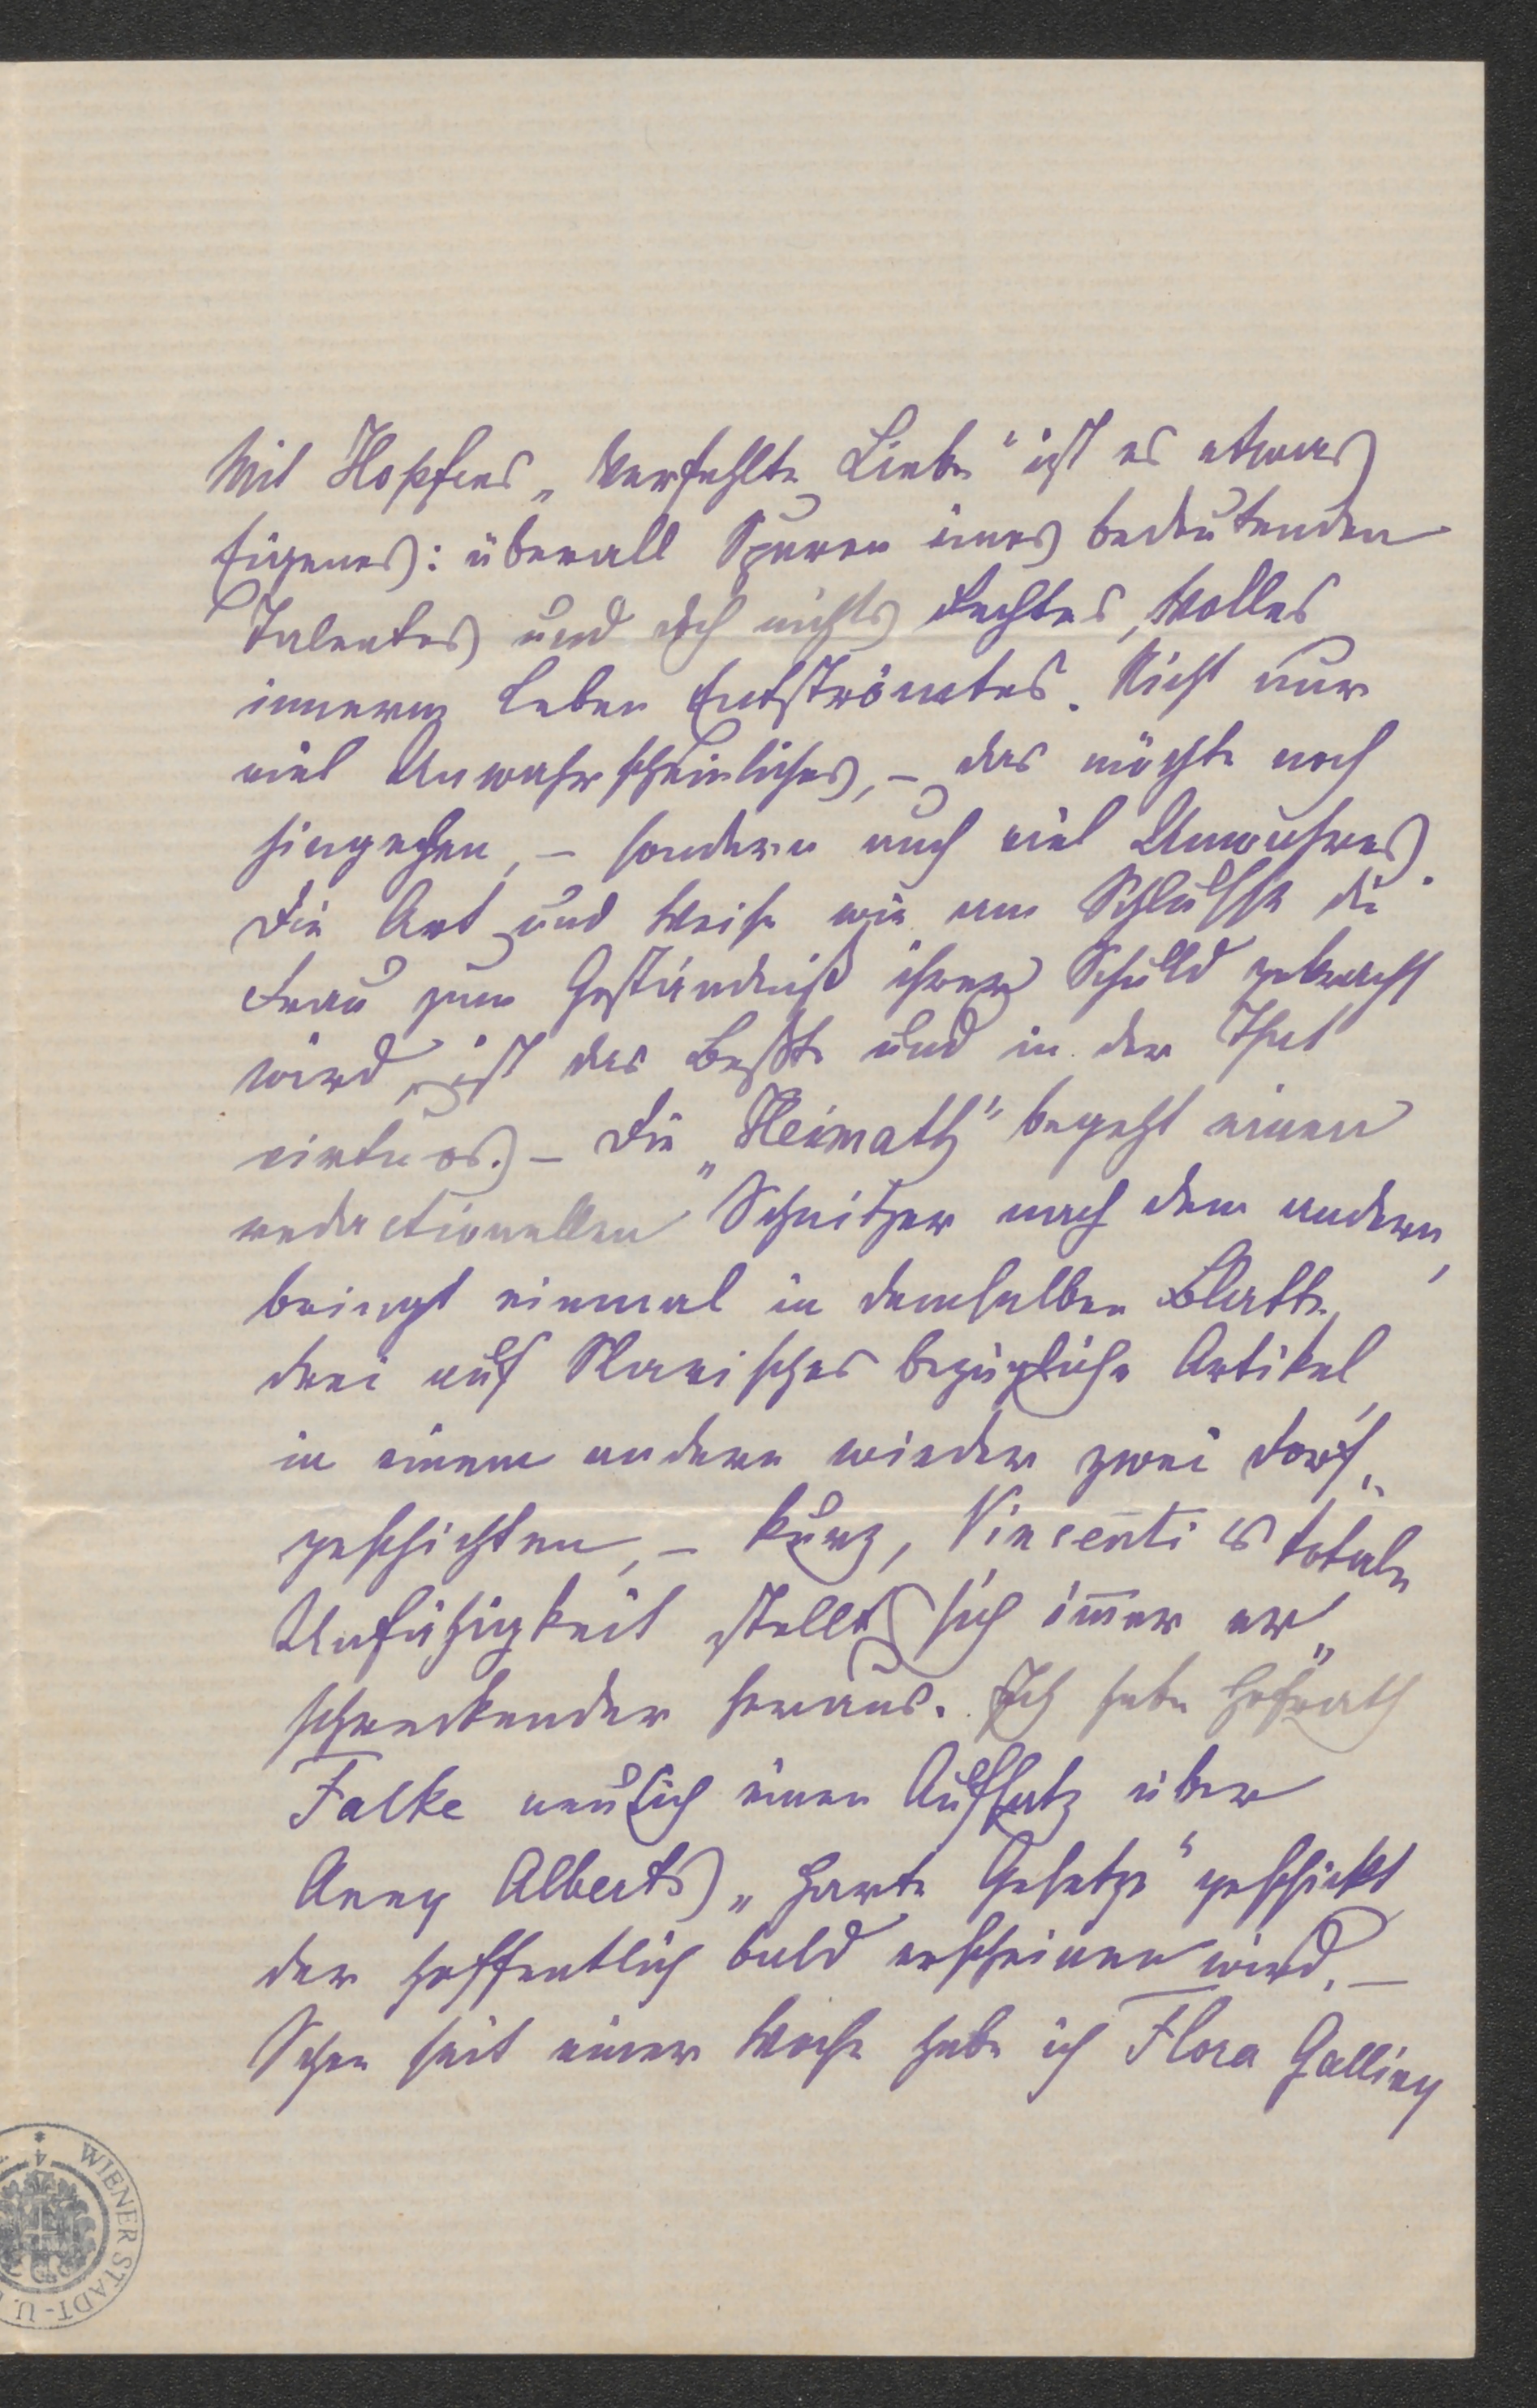 Mit Hopfens „Verfehlte Liebe“ ist es etwas
Eigenes: überall Spuren eines bedeutenden
Talentes und doch nichts Echtes, Volles
innerem Leben Entströmtes. Nicht nur
viel Unwahrscheinliches, – das möchte noch
hingehen, – sondern auch viel Unwahres.
Die Art und Weise wie am Schlusse die
Frau zum Geständniß ihrer Schuld gebracht
wird, ist das Beste und in der That
virtuos. – Die „Heimath“ begeht einen
redactionellen Schnitzer nach dem andern,
bringt einmal in demselben Blatte
drei auf Slavisches bezügliche Artikel,
in einem andern wieder zwei Dorf„
geschichten, – kurz, Vincenti's totale
Unfähigkeit stellt sich im̄er er„
schreckender heraus. Ich habe Hofrath
Falke neulich einen Aufsatz über
Anny Alberts „Harte Gesetze“ geschickt
der hoffentlich bald erscheinen wird. –
Schon seit einer Woche habe ich Flora Galliny
WIENER STADT- U.